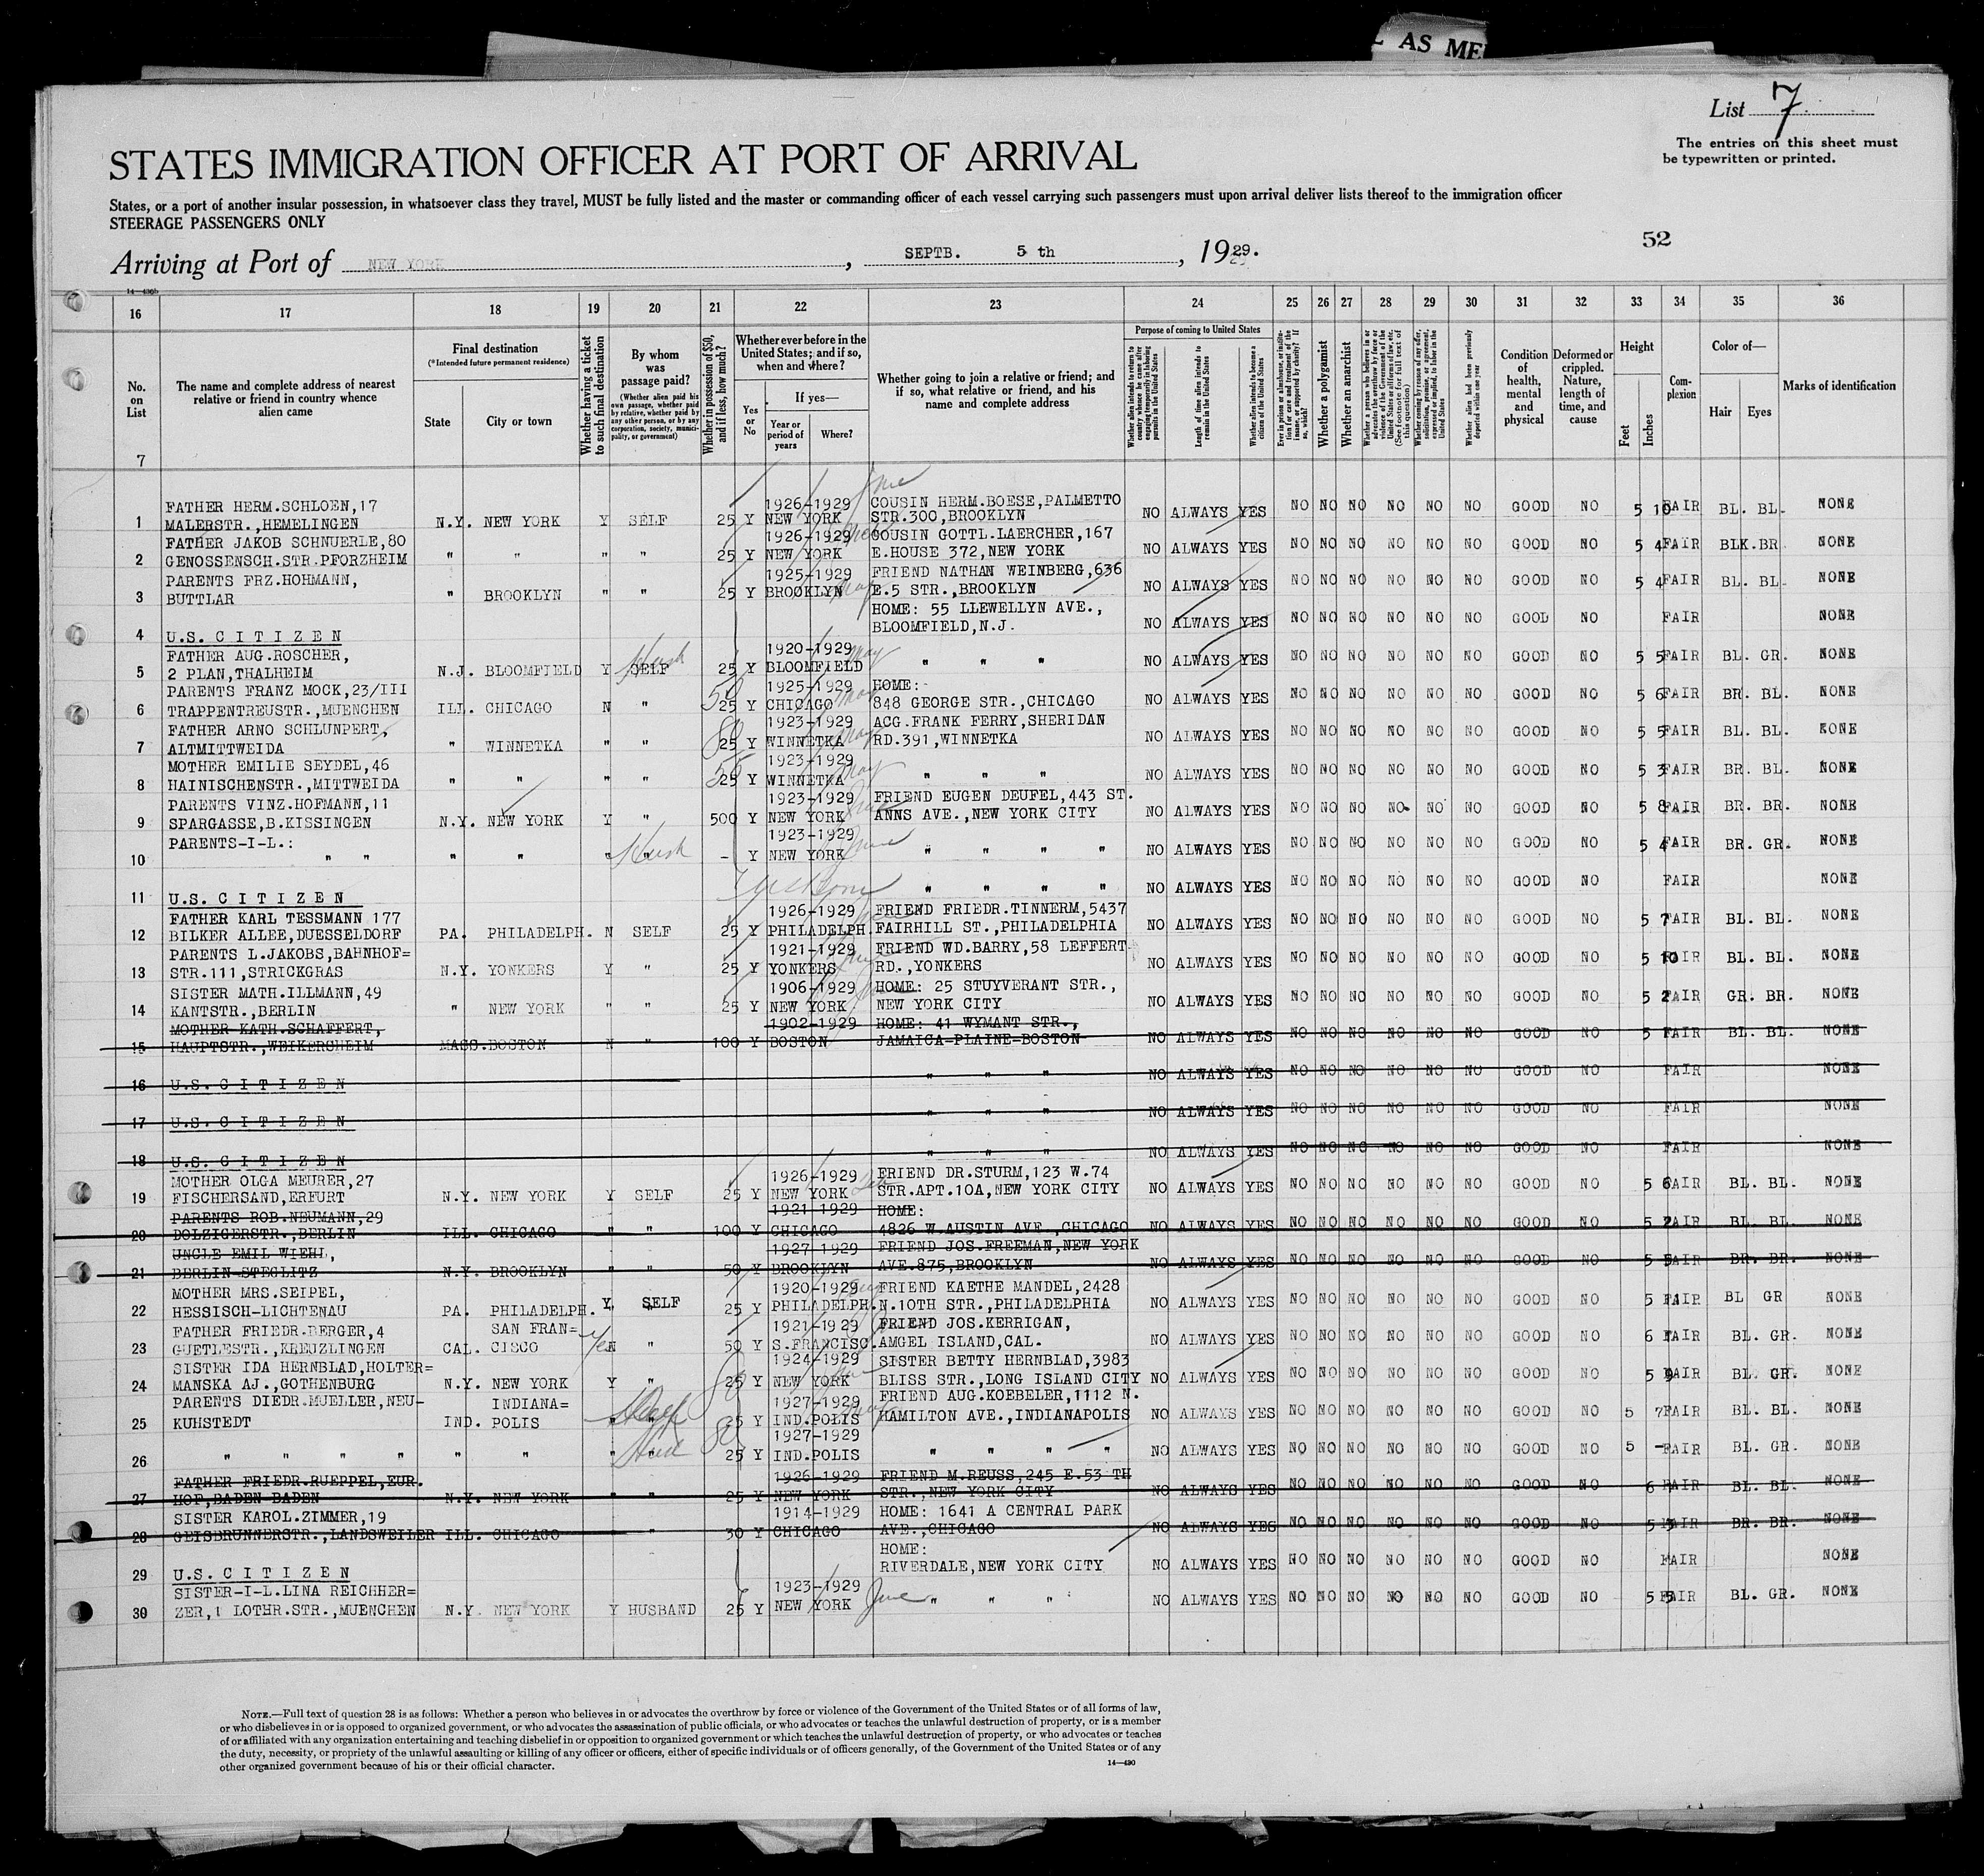 L AS ME
List 7
The entries on this sheet must
be typewritten or printed.
STATES IMMIGRATION OFFICER AT PORT OF ARRIVAL
States, or a port of another insular possession, in whatsoever class they travel, MUST be fully listed and the master or commanding officer of each vessel carrying such passengers must upon arrival deliver lists thereof to the immigration officer
STEERAGE PASSENGERS ONLY
52
Arriving at Port of NEW YORK, SEPTB. 5 th, 1929.
16 17 18 19 20 21 22 23 24 25 26 27 28 29 30 31 32 33 34 35 36
No. on List
The name and complete address of nearest relative or friend in country whence alien came
Final destination
(*Intended future permanent residence)
State City or town
Whether having a ticket to such final destination
By whom was passage paid?
(Whether alien paid his own passage, whether paid by relative, whether paid by any other person, or by any corporation, society, municipality, or government)
Whether in possession of $50, and if less, how much?
Whether ever before in the United States; and if so, when and where?
Yes or No
If yes—
Year or period of years Where?
Whether going to join a relative or friend; and if so, what relative or friend, and his name and complete address
Purpose of coming to United States
Length of time alien intends to remain in the United States
Whether alien intends to become a citizen of the United States
Whether a polygamist
Whether an anarchist
Condition of health, mental and physical
Deformed or crippled. Nature, length of time, and cause
Height
Feet Inches
Complexion
Color of—
Hair Eyes
Marks of identification
7
FATHER HERM.SCHLOEN,17 1926-1929 June COUSIN HERM.BOESE,PALMETTO
1 MALERSTR.,HEMELINGEN N.Y. NEW YORK Y SELF 25 Y NEW YORK STR.300,BROOKLYN NO ALWAYS YES NO NO NO NO NO NO GOOD NO 5 10 FAIR BL. BL. NONE
FATHER JAKOB SCHNUERLE,80 1926-1929 COUSIN GOTTL.LAERCHER,167
2 GENOSSENSCH.STR.PFORZHEIM " " " " 25 Y NEW YORK E.HOUSE 372,NEW YORK NO ALWAYS YES NO NO NO NO NO NO GOOD NO 5 4 FAIR BLK.BR NONE
PARENTS FRZ.HOHMANN, 1925-1929 FRIEND NATHAN WEINBERG,636
3 BUTTLAR " BROOKLYN " " 25 Y BROOKLYN E.5 STR.,BROOKLYN NO ALWAYS YES NO NO NO NO NO NO GOOD NO 5 4 FAIR BL. BL. NONE
HOME: 55 LLEWELLYN AVE.,
4 U.S. C I T I Z E N BLOOMFIELD,N.J. NO ALWAYS YES NO NO NO NO NO NO GOOD NO FAIR NONE
FATHER AUG.ROSCHER, 1920-1929 May
5 2 PLAN,THALHEIM N.J. BLOOMFIELD Y SELF Husb 25 Y BLOOMFIELD " " " NO ALWAYS YES NO NO NO NO NO NO GOOD NO 5 5 FAIR BL. GR. NONE
PARENTS FRANZ MOCK,23/III 50 1925-1929 May HOME:
6 TRAPPENTREUSTR.,MUENCHEN ILL. CHICAGO N " 25 Y CHICAGO 848 GEORGE STR.,CHICAGO NO ALWAYS YES NO NO NO NO NO NO GOOD NO 5 6 FAIR BR. BL. NONE
FATHER ARNO SCHLUNPERT, 80 1923-1929 May ACG.FRANK FERRY,SHERIDAN
7 ALTMITTWEIDA " WINNETKA " " 25 Y WINNETKA RD.391,WINNETKA NO ALWAYS YES NO NO NO NO NO NO GOOD NO 5 5 FAIR BL. BL. NONE
MOTHER EMILIE SEYDEL,46 1923-1929 May
8 HAINISCHENSTR.,MITTWEIDA " " " " 25 Y WINNETKA " " " NO ALWAYS YES NO NO NO NO NO NO GOOD NO 5 3 FAIR BR. BL. NONE
PARENTS VINZ.HOFMANN,11 1923-1929 FRIEND EUGEN DEUFEL,443 ST.
9 SPARGASSE,B.KISSINGEN N.Y. NEW YORK Y " 500 Y NEW YORK ANNS AVE.,NEW YORK CITY NO ALWAYS YES NO NO NO NO NO NO GOOD NO 5 8 FAIR BR. BR. NONE
PARENTS-I-L.: 1923-1929 June
10 " " " " " " Husb - Y NEW YORK " " " " NO ALWAYS YES NO NO NO NO NO NO GOOD NO 5 4 FAIR BR. GR. NONE
11 U.S. C I T I Z E N " " " " NO ALWAYS YES NO NO NO NO NO NO GOOD NO FAIR NONE
FATHER KARL TESSMANN 177 1926-1929 FRIEND FRIEDR.TINNERM,5437
12 BILKER ALLEE,DUESSELDORF PA. PHILADELPH. N SELF 25 Y PHILADELPH. FAIRHILL ST.,PHILADELPHIA NO ALWAYS YES NO NO NO NO NO NO GOOD NO 5 7 FAIR BL. BL. NONE
PARENTS L.JAKOBS,BAHNHOF= 1921-1929 FRIEND WD.BARRY,58 LEFFERT
13 STR.111,STRICKGRAS N.Y. YONKERS Y " 25 Y YONKERS RD.,YONKERS NO ALWAYS YES NO NO NO NO NO NO GOOD NO 5 10 FAIR BL. BL. NONE
SISTER MATH.ILLMANN,49 1906-1929 HOME: 25 STUYVERANT STR.,
14 KANTSTR.,BERLIN " NEW YORK " " 25 Y NEW YORK NEW YORK CITY NO ALWAYS YES NO NO NO NO NO NO GOOD NO 5 2 FAIR GR. BR. NONE
MOTHER KATH.SCHAFFERT, 1902-1929 HOME: 41 WYMANT STR.,
15 HAUPTSTR.,WEIKERSHEIM MASS.BOSTON N " 100 Y BOSTON JAMAICA-PLAINE-BOSTON NO ALWAYS YES NO NO NO NO NO NO GOOD NO 5 FAIR BL. BL. NONE
16 U.S. C I T I Z E N " " " NO ALWAYS YES NO NO NO NO NO NO GOOD NO FAIR NONE
17 U.S. C I T I Z E N " " " NO ALWAYS YES NO NO NO NO NO NO GOOD NO FAIR NONE
18 U.S. C I T I Z E N " " " NO ALWAYS YES NO NO NO NO NO NO GOOD NO FAIR NONE
MOTHER OLGA MEURER,27 1926-1929 FRIEND DR.STURM,123 W.74
19 FISCHERSAND,ERFURT N.Y. NEW YORK Y SELF 25 Y NEW YORK STR.APT.10A,NEW YORK CITY NO ALWAYS YES NO NO NO NO NO NO GOOD NO 5 6 FAIR BL. BL. NONE
PARENTS ROB.NEUMANN,29 1921-1929 HOME:
20 DOLZIGERSTR.,BERLIN ILL. CHICAGO " " 100 Y CHICAGO 4826 W.AUSTIN AVE.,CHICAGO NO ALWAYS YES NO NO NO NO NO NO GOOD NO 5 2 FAIR BL. BL. NONE
UNCLE EMIL WIEHL, 1927-1929 FRIEND JOS.FREEMAN,NEW YORK
21 BERLIN-STEGLITZ N.Y. BROOKLYN " " 50 Y BROOKLYN AVE.875,BROOKLYN NO ALWAYS YES NO NO NO NO NO NO GOOD NO 5 5 FAIR BR. BR. NONE
MOTHER MRS.SEIPEL, 1920-1929 FRIEND KAETHE MANDEL,2428
22 HESSISCH-LICHTENAU PA. PHILADELPH. Y SELF 25 Y PHILADELPH. N.10TH STR.,PHILADELPHIA NO ALWAYS YES NO NO NO NO NO NO GOOD NO 5 FAIR BL GR NONE
FATHER FRIEDR.BERGER,4 SAN FRAN= 1921-1929 FRIEND JOS.KERRIGAN,
23 GUETLESTR.,KREUZLINGEN CAL. CISCO Yes N " 50 Y S.FRANCISC. AMGEL ISLAND,CAL. NO ALWAYS YES NO NO NO NO NO NO GOOD NO 6 FAIR BL. GR. NONE
SISTER IDA HERNBLAD,HOLTER= 1924-1929 SISTER BETTY HERNBLAD,3983
24 MANSKA AJ.,GOTHENBURG N.Y. NEW YORK Y " 25 Y NEW YORK BLISS STR.,LONG ISLAND CITY NO ALWAYS YES NO NO NO NO NO NO GOOD NO 5 9 FAIR BL. GR. NONE
PARENTS DIEDR.MUELLER,NEU- INDIANA= 80 1927-1929 FRIEND AUG.KOEBELER,1112 N.
25 KUHSTEDT IND. POLIS " " Self 25 Y IND.POLIS HAMILTON AVE.,INDIANAPOLIS NO ALWAYS YES NO NO NO NO NO NO GOOD NO 5 7 FAIR BL. BL. NONE
80 1927-1929
26 " " " " " " " " 25 Y IND.POLIS " " " " NO ALWAYS YES NO NO NO NO NO NO GOOD NO 5 - FAIR BL. GR. NONE
FATHER FRIEDR.RUEPPEL,EUR. 1926-1929 FRIEND M.REUSS,245 E.53 TH
27 HOF,BADEN-BADEN N.Y. NEW YORK " " 25 Y NEW YORK STR.,NEW YORK CITY NO ALWAYS YES NO NO NO NO NO NO GOOD NO 6 FAIR BL. BL. NONE
SISTER KAROL.ZIMMER,19 1914-1929 HOME: 1641 A CENTRAL PARK
28 GEISBRUNNERSTR.,LANDSWEILER ILL. CHICAGO " 30 Y CHICAGO AVE.,CHICAGO NO ALWAYS YES NO NO NO NO NO NO GOOD NO 5 FAIR BR. BR. NONE
HOME:
29 U.S. C I T I Z E N RIVERDALE,NEW YORK CITY NO ALWAYS YES NO NO NO NO NO NO GOOD NO FAIR NONE
SISTER-I-L.LINA REICHHER= 1923-1929 June
30 ZER,1 LOTHR.STR.,MUENCHEN N.Y. NEW YORK Y HUSBAND 25 Y NEW YORK " " " NO ALWAYS YES NO NO NO NO NO NO GOOD NO 5 5 FAIR BL. GR. NONE
NOTE.—Full text of question 28 is as follows: Whether a person who believes in or advocates the overthrow by force or violence of the Government of the United States or of all forms of law,
or who disbelieves in or is opposed to organized government, or who advocates the assassination of public officials, or who advocates or teaches the unlawful destruction of property, or is a member
of or affiliated with any organization entertaining and teaching disbelief in or opposition to organized government or which teaches the unlawful destruction of property, or who advocates or teaches
the duty, necessity, or propriety of the unlawful assaulting or killing of any officer or officers, either of specific individuals or of officers generally, of the Government of the United States or of any
other organized government because of his or their official character.
14—430